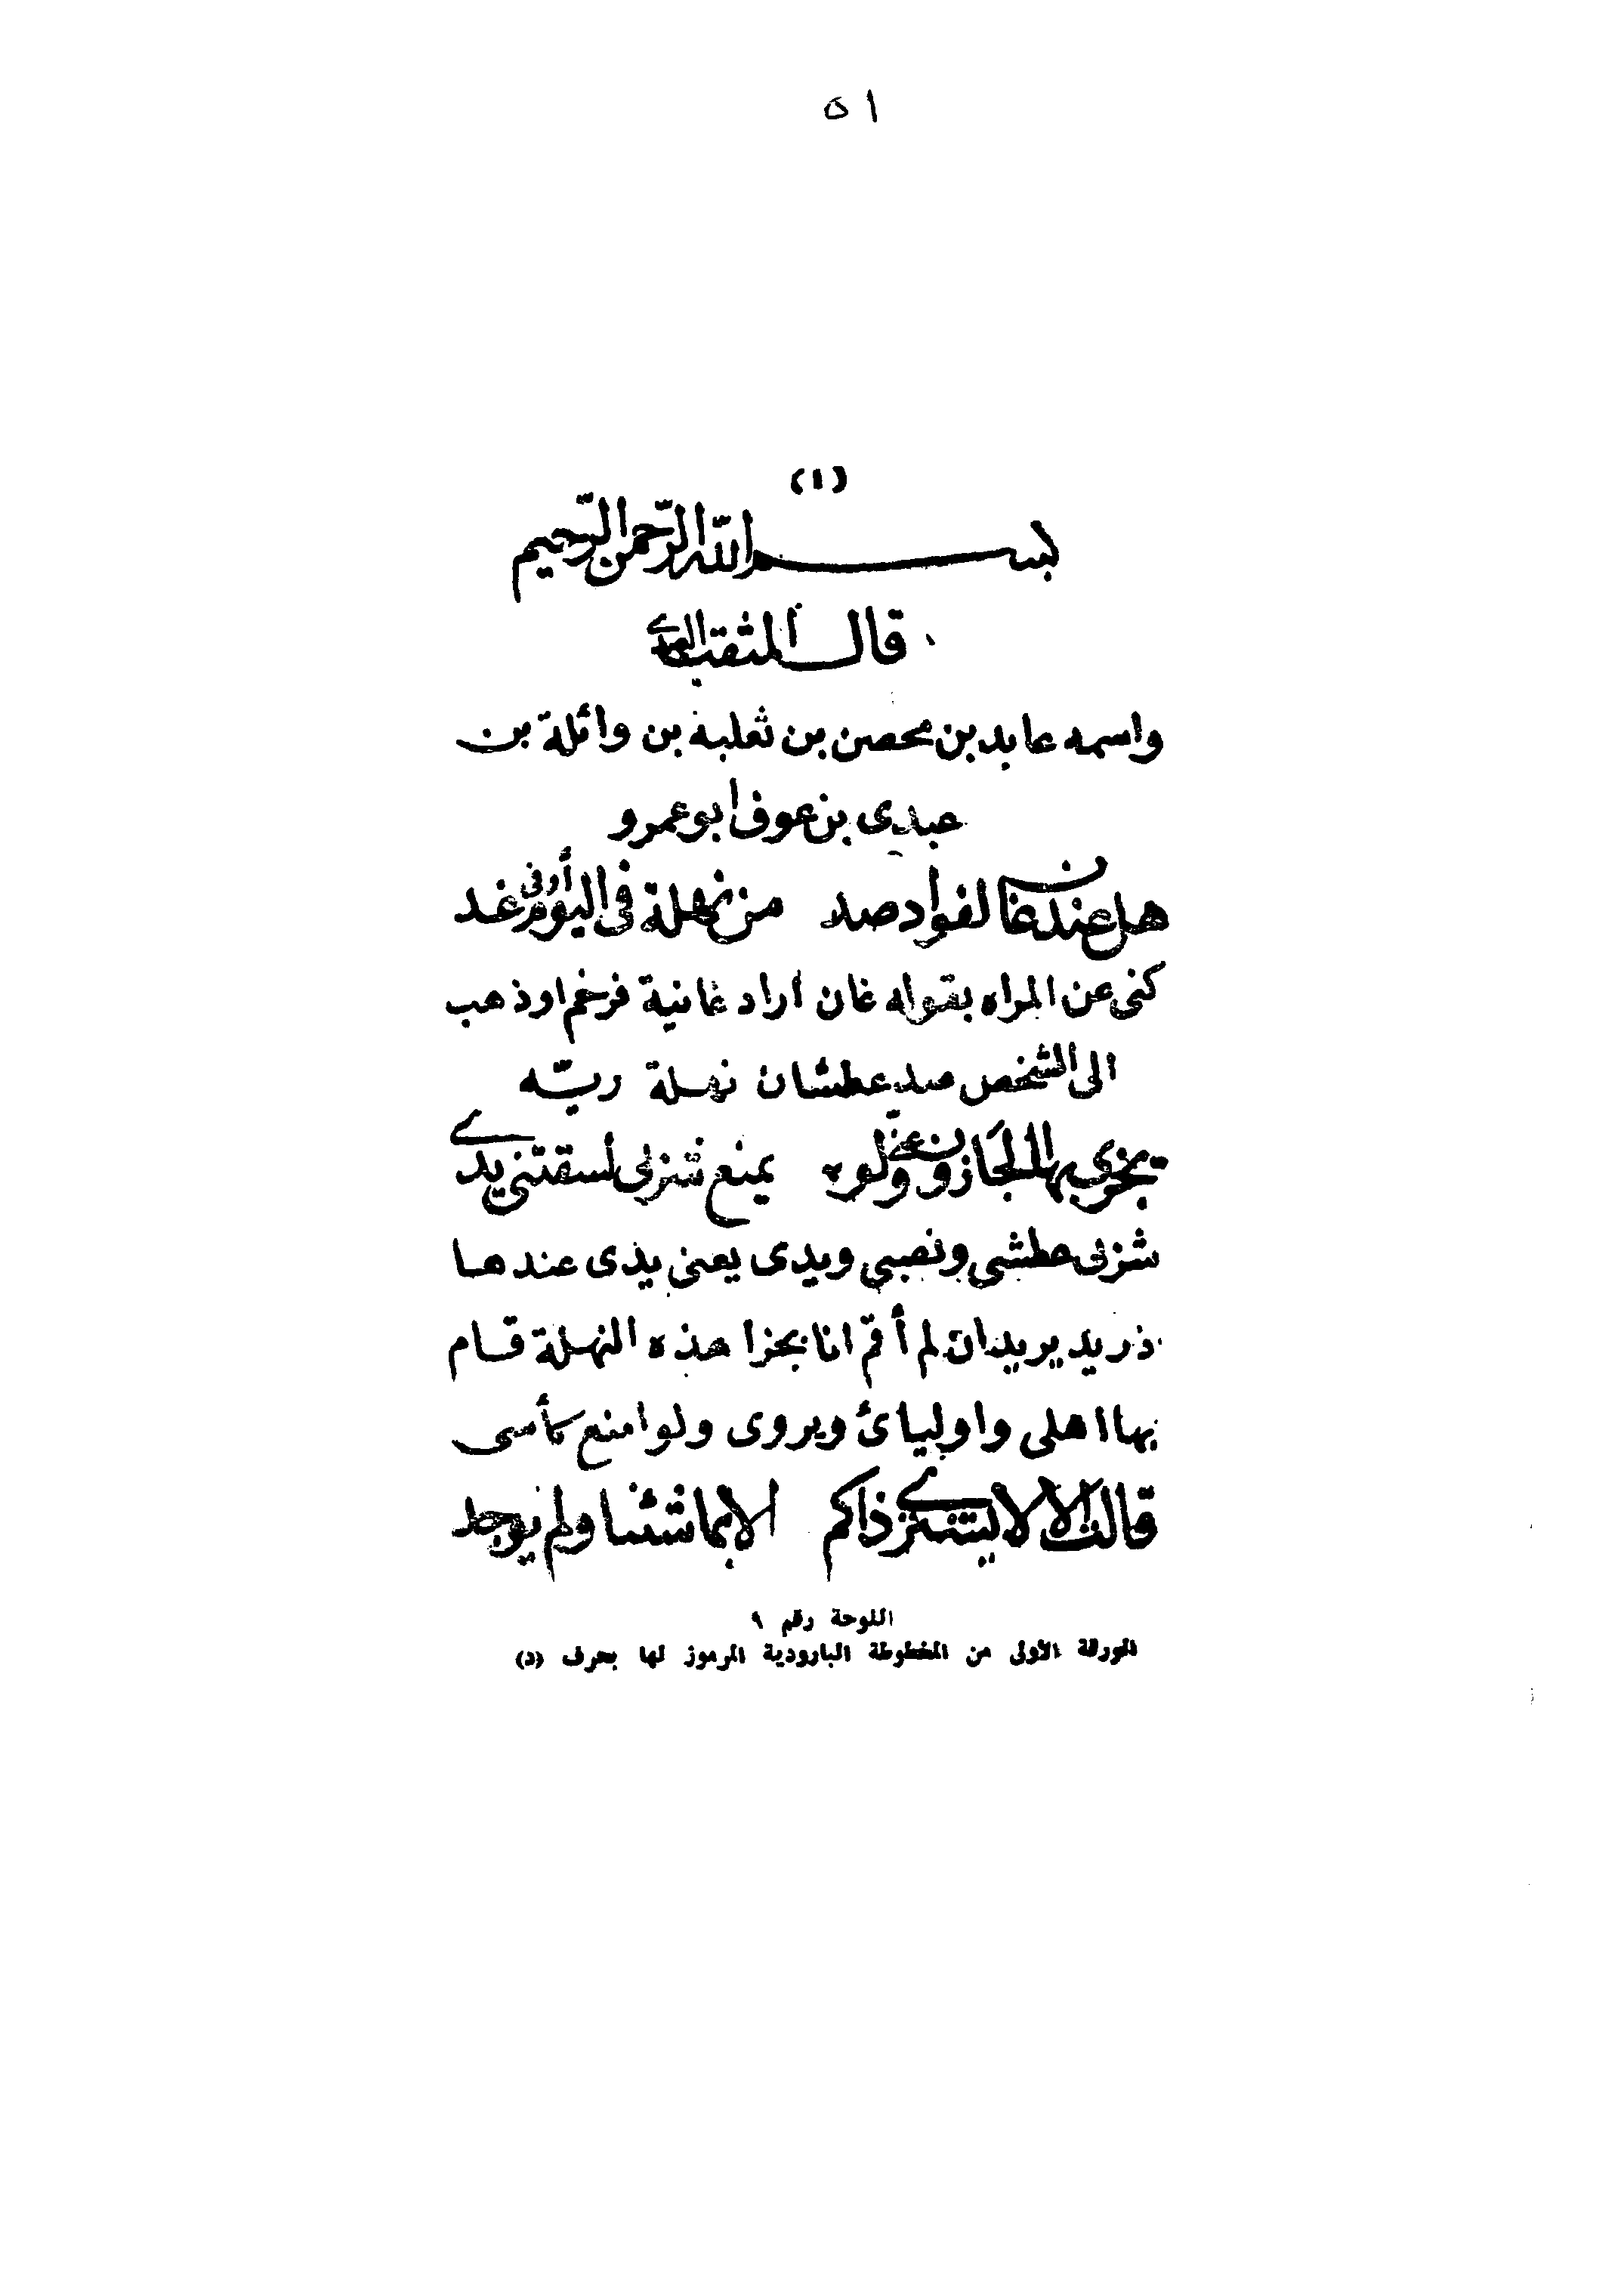 ٥١
(١)
بسم الله الرحمن الرحيم
قال المثقب العبدي
واسمه عايد بن محصن بن ثعلبة بن واثلة بن
عبدى بن عوف ابو عمرو
هل عند غان لفواد صد من نهلة فى اليوم أو فى غد
كنى عن المراه بقوله غان اراد غانية فرخم اوذهب
الى الشخص صد عطشان نهلة ريّه
يجزى بها الجازون عنى ولو يمنع شزبى لسقتنى يدى
شزبى عطشى ونصبى ويدى يعنى يذى عندها
ذريد يريد ان لم أقم انا بجزا هذه النهلة قام
بها اهلى واوليائ ويروى ولو امنع كأسى
قالت الا لا يشترى ذاكم الا بما شئنا ولم يوجد
اللوحة رقم ٩
الورقة الأولى من المخطوطة البارودية المرموز لها بحرف (د)